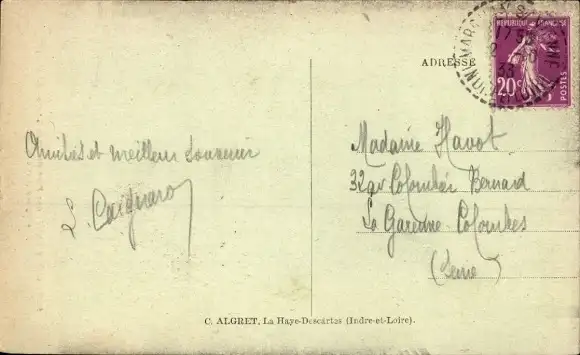 ADRESSE
REPUBLIQUE FRANÇAISE
20c
POSTES
33
INDRE
Amitiés et meilleur souvenir
L.
Madame Havot
32 av Colombér Bernard
La Garenne-Colombes
(Seine)
C. ALGRET, La Haye-Descartes (Indre-et-Loire).